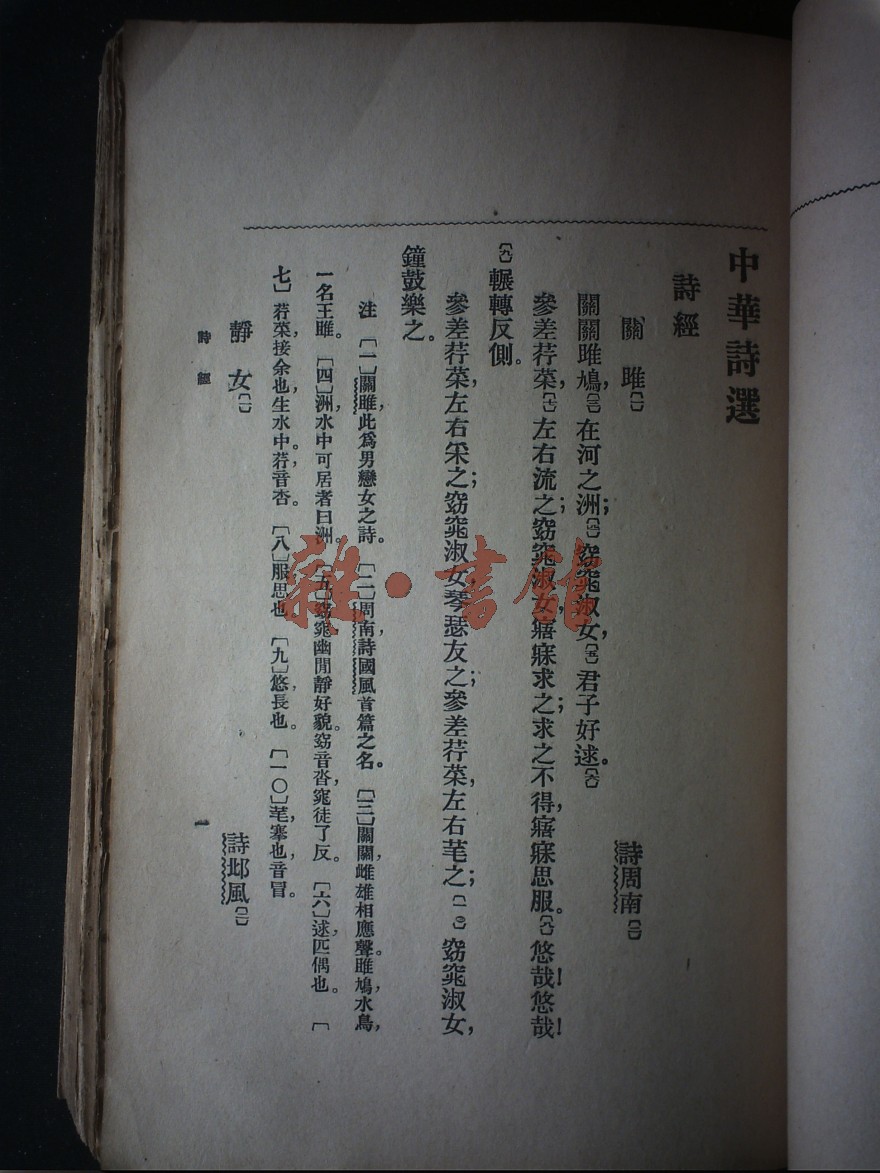 中華詩選
詩經
關雎〔一〕 詩周南〔二〕
關關雎鳩，〔三〕在河之洲；〔四〕窈窕淑女，〔五〕君子好逑。〔六〕
參差荇菜，〔七〕左右流之；窈窕淑女，寤寐求之；求之不得，寤寐思服。〔八〕悠哉！悠哉！
〔九〕輾轉反側。
參差荇菜，左右采之；窈窕淑女，琴瑟友之；參差荇菜，左右芼之；〔一〇〕窈窕淑女，
鐘鼓樂之。
注 〔一〕關雎，此爲男戀女之詩。〔二〕周南，詩國風首篇之名。〔三〕關關，雌雄相應聲。雎鳩，水鳥，
一名王雎。〔四〕洲，水中可居者曰洲。〔五〕窈窕，幽閒靜好貌。窈音杳，窕，徒了反。〔六〕逑，匹偶也。〔
七〕荇菜，接余也，生水中。荇，音杏。〔八〕服，思也。〔九〕悠，長也。〔一〇〕芼，搴也，音冒。
靜女〔一〕 詩邶風〔二〕
詩經 一
雜·書館